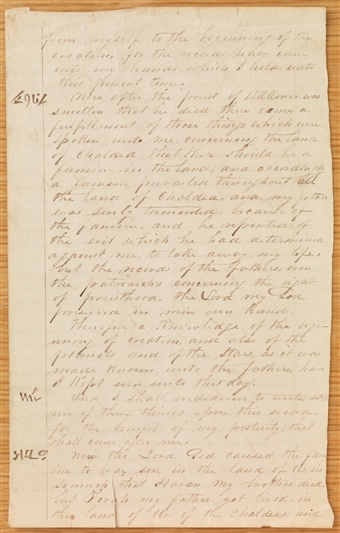 from myself to the begining of the
creation, for the records have come
into my hands, which I hold unto
this present time.
Now after the priest of Elkkener was
smitten that he died there came a
fulfillment of those things which were
spoken unto me concerning the land
of Chaldea that there should be a
famine in the land; and accordingly
a famine prevailed throughout all
the land of Chaldea and my father
was sorely tormented because of
the famine, and he repented of
the evil which he had determined
against me, to take away my life,
but the records of the fathers, even
the patriarchs concerning the right
of priesthood, the Lord my God
preserved in mine own hands.
Therefore a knowledge of the
of creation, and also of the
planets and of the stars, as it was
made known unto the fathers, have
I kept even unto this day.
And I shall endeavor to write some
of these things upon this record,
for the benefit of my posterity that
shall come after me.
Now the Lord God caused the
to wax sore in the land of Ur in
somuch that Haran my brother died
but Terah my father yet lived in
the land of Ur of the Chaldees and